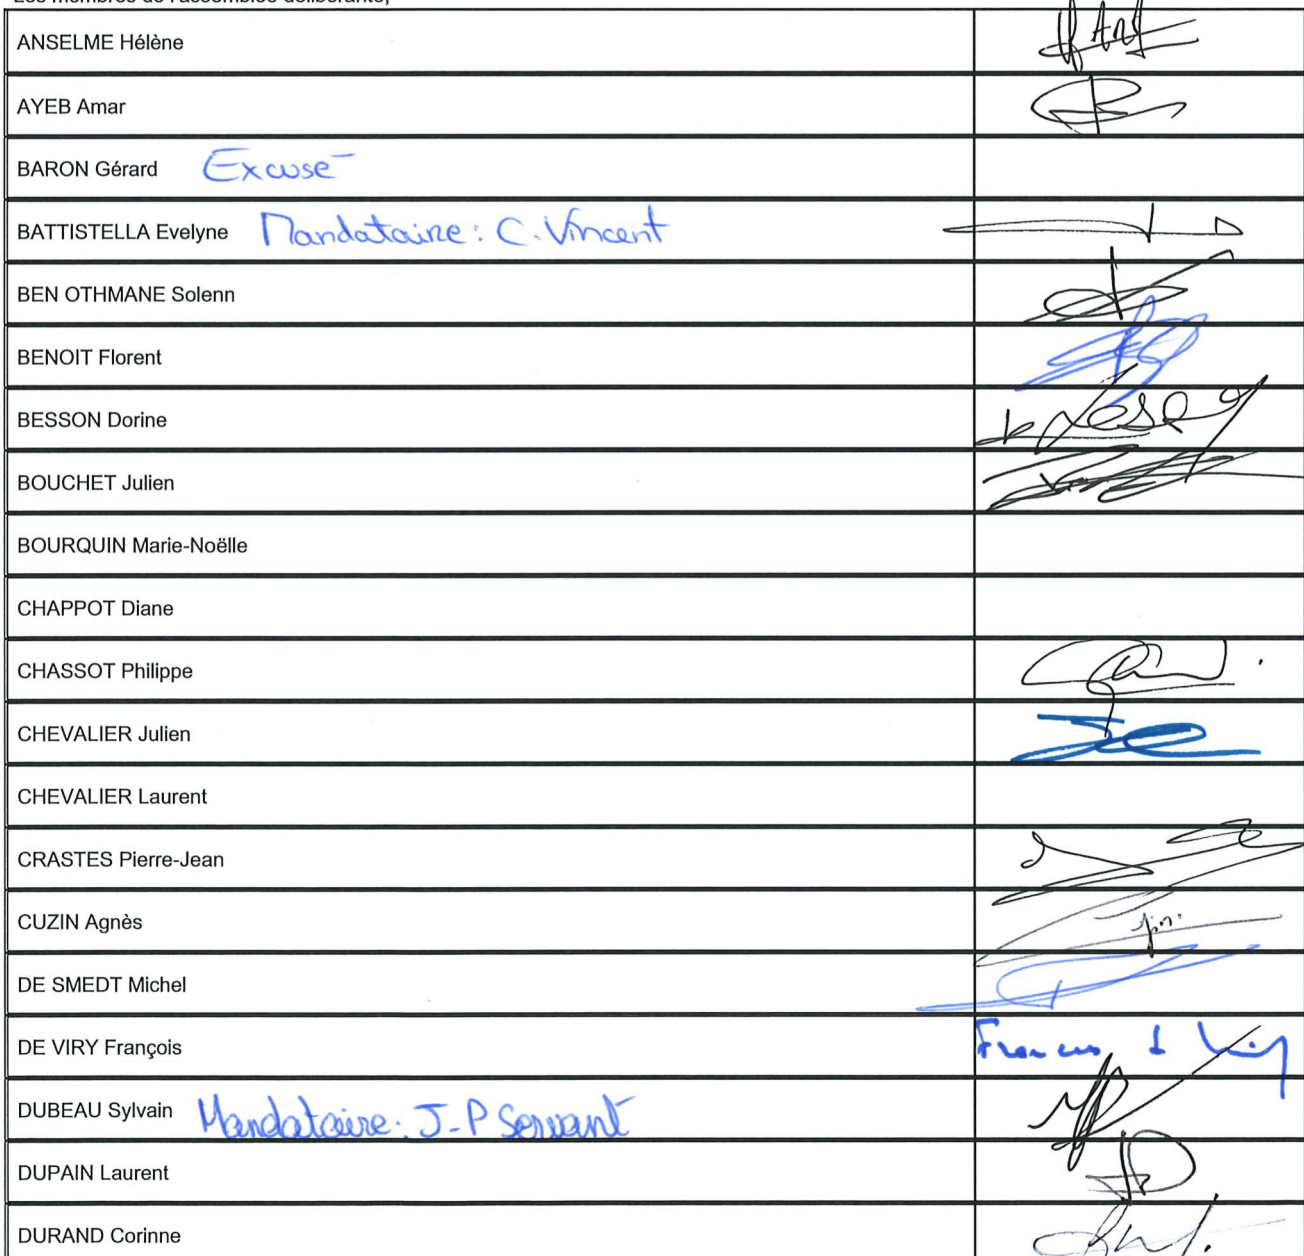 Les membres de l'assemblée délibérante,
ANSELME Hélène
AYEB Amar
BARON Gérard Excusé
BATTISTELLA Evelyne Mandataire : C. Vincent
BEN OTHMANE Solenn
BENOIT Florent
BESSON Dorine
BOUCHET Julien
BOURQUIN Marie-Noëlle
CHAPPOT Diane
CHASSOT Philippe
CHEVALIER Julien
CHEVALIER Laurent
CRASTES Pierre-Jean
CUZIN Agnès
DE SMEDT Michel
DE VIRY François
DUBEAU Sylvain Mandataire : J-P Servant
DUPAIN Laurent
DURAND Corinne